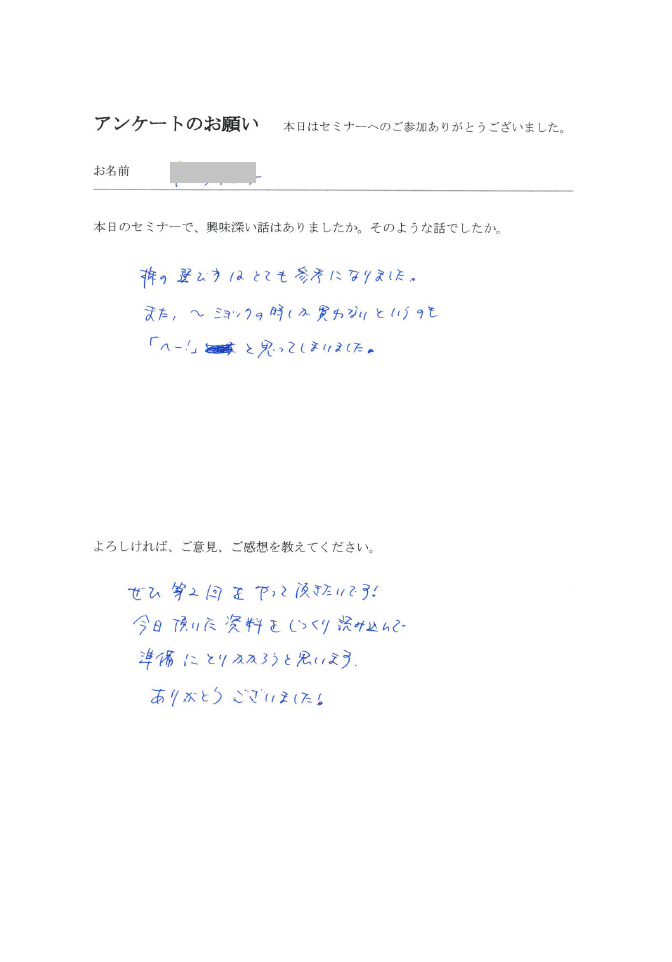 アンケートのお願い　本日はセミナーへのご参加ありがとうございました。
お名前
本日のセミナーで、興味深い話はありましたか。そのような話でしたか。
株の選び方はとても参考になりました。
また, 〜ショックの時しか買わないというのも
「へー!」と思ってしまいました。
よろしければ、ご意見、ご感想を教えてください。
ぜひ第2回をやって頂きたいです!
今日頂いた資料をじっくり読み込んで
準備にとりかかろうと思います.
ありがとうございました!